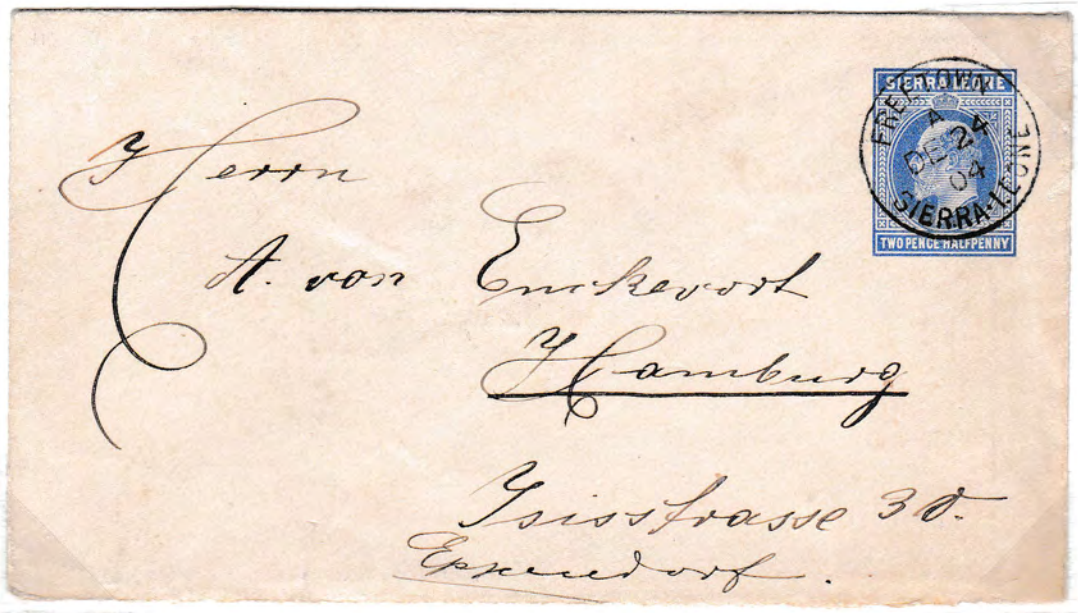 SIERRA LEONE
FREETOWN
A
DE 24
04
SIERRA-LEONE
TWO PENCE HALFPENNY
Herrn
A. von Enckevort
Hamburg
Isisstrasse 3
Eppendorf.